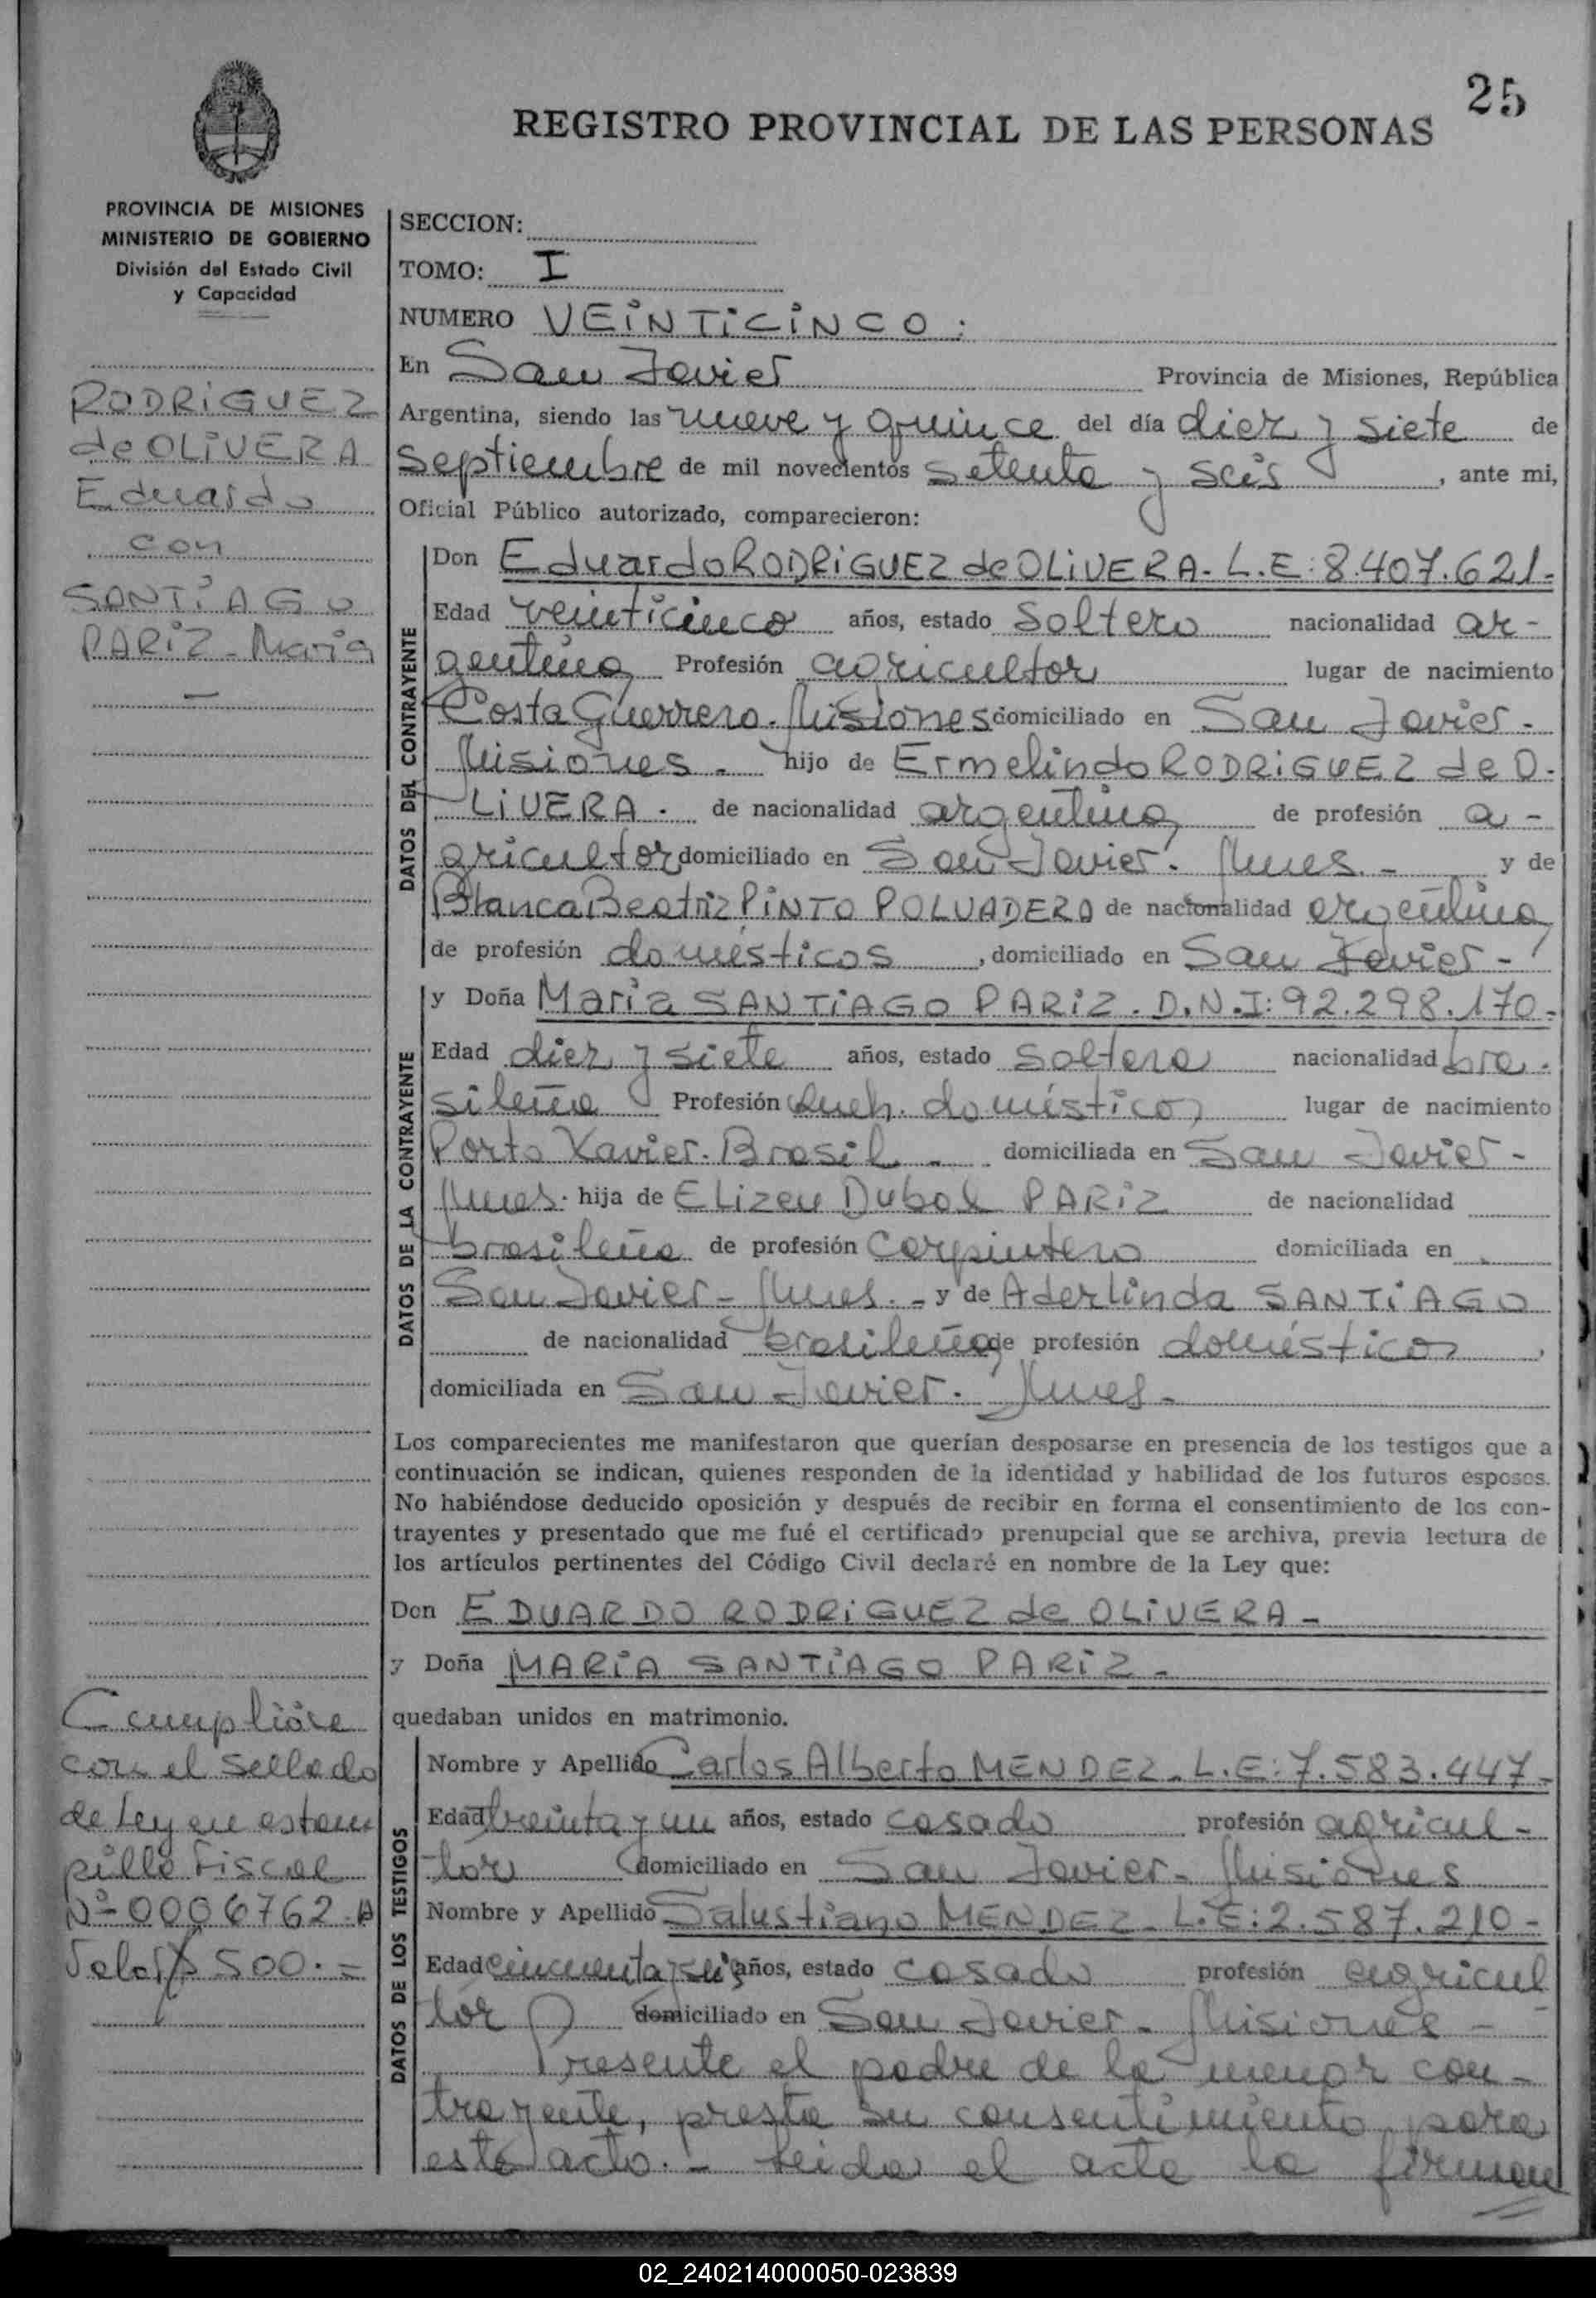 25
REGISTRO PROVINCIAL DE LAS PERSONAS
PROVINCIA DE MISIONES
MINISTERIO DE GOBIERNO
División del Estado Civil
y Capacidad
RODRIGUEZ
de OLIVERA
Eduardo
con
SANTIAGO
PARIZ - Maria
Cumplióse
con el sellado
de Ley en estam
pilla Fiscal
Nº 0006762-A
Valor $ 500.=
SECCION:
TOMO: I
NUMERO VEINTICINCO:
En San Javier Provincia de Misiones, República
Argentina, siendo las nueve y quince del día diez y siete de
septiembre de mil novecientos setenta y seis, ante mi,
Oficial Público autorizado, comparecieron:
DATOS DEL CONTRAYENTE
Don Eduardo RODRIGUEZ de OLIVERA - L.E: 8.407.621.-
Edad veinticinco años, estado soltero nacionalidad ar-
gentina Profesión agricultor lugar de nacimiento
Costa Guerrero. Misiones domiciliado en San Javier -
Misiones - hijo de Ermelindo RODRIGUEZ de O-
LIVERA. de nacionalidad argentina de profesión a-
gricultor domiciliado en San Javier. Mnes. - y de
Blanca Beatriz PINTO POLVADERA de nacionalidad argentina
de profesión domésticos, domiciliado en San Javier -
DATOS DE LA CONTRAYENTE
y Doña Maria SANTIAGO PARIZ. D.N.I: 92.298.170-
Edad diez y siete años, estado soltera nacionalidad bra-
sileña Profesión Queh. doméstico lugar de nacimiento
Porto Xavier. Brasil - domiciliada en San Javier -
Mnes. hija de Elizeu Dubal PARIZ de nacionalidad
brasileña de profesión Carpintero domiciliada en
San Javier - Mnes. - y de Aderlinda SANTIAGO
de nacionalidad brasileña de profesión domésticos,
domiciliada en San Javier. Mnes -
Los comparecientes me manifestaron que querían desposarse en presencia de los testigos que a
continuación se indican, quienes responden de la identidad y habilidad de los futuros esposos.
No habiéndose deducido oposición y después de recibir en forma el consentimiento de los con-
trayentes y presentado que me fué el certificado prenupcial que se archiva, previa lectura de
los artículos pertinentes del Código Civil declaré en nombre de la Ley que:
Don EDUARDO RODRIGUEZ de OLIVERA -
y Doña MARÍA SANTIAGO PARIZ -
quedaban unidos en matrimonio.
DATOS DE LOS TESTIGOS
Nombre y Apellido Carlos Alberto MENDEZ - L.E: 7.583.447-
Edad treinta y un años, estado casado profesión agricul-
tor domiciliado en San Javier - Misiones
Nombre y Apellido Salustiano MENDEZ - L.E: 2.587.210-
Edad cincuenta y seis años, estado casado profesión agricul
tor domiciliado en San Javier - Misiones -
Presente el padre de la menor con-
trayente, presta su consentimiento para
este acto. - Leida el acta la firman
02_240214000050-023839